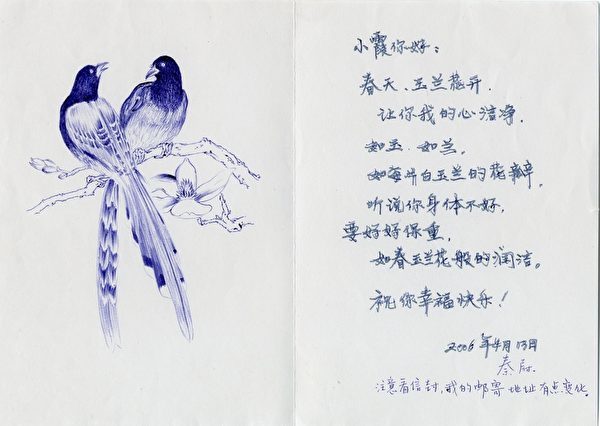 小霞你好：
春天、玉兰花开.
让你我的心洁净.
如玉、如兰.
如每片白玉兰的花瓣.
听说你身体不好.
要好好保重,
如春玉兰花般的润洁。
祝你幸福快乐！
2006年4月13日
秦尉.
注意看信封,我的邮寄地址有点变化.